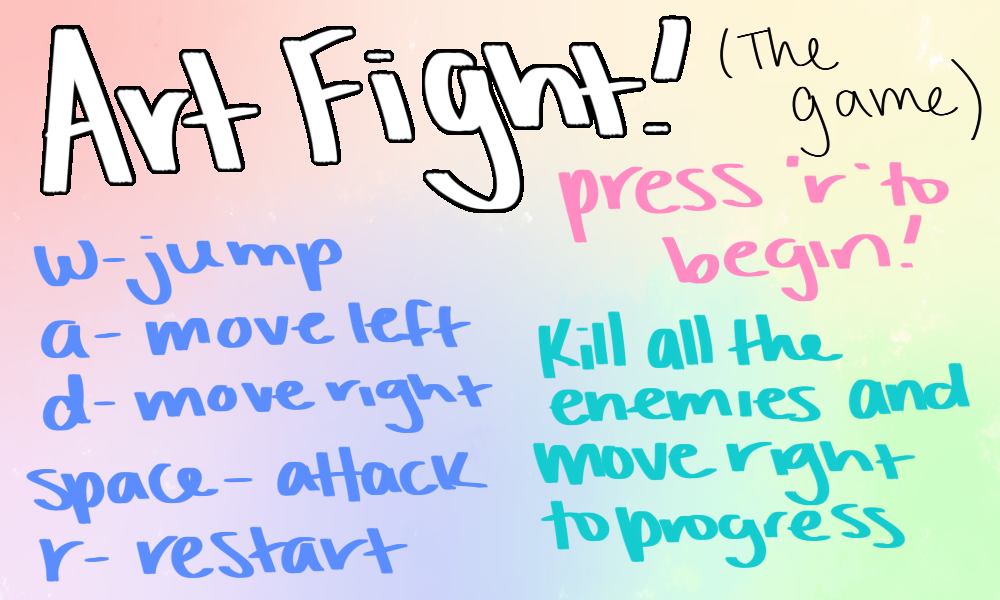 Art Fight!
(The
game)
press 'r' to
begin!
w- jump
a- move left
d- move right
space- attack
r- restart
Kill all the
enemies and
move right
to progress